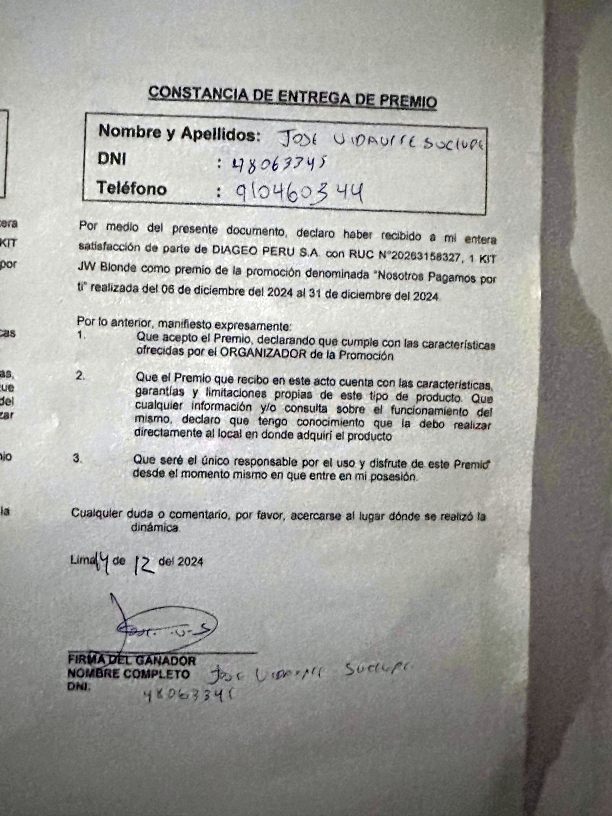 CONSTANCIA DE ENTREGA DE PREMIO
Nombre y Apellidos: JOSE VIDAURRE SUCLUPE
DNI : 48063345
Teléfono : 910460344
Por medio del presente documento, declaro haber recibido a mi entera
satisfacción de parte de DIAGEO PERU S.A. con RUC N°20263158327, 1 KIT
JW Blonde como premio de la promoción denominada "Nosotros Pagamos por
ti" realizada del 06 de diciembre del 2024 al 31 de diciembre del 2024
Por lo anterior, manifiesto expresamente:
1. Que acepto el Premio, declarando que cumple con las características
ofrecidas por el ORGANIZADOR de la Promoción
2. Que el Premio que recibo en este acto cuenta con las características,
garantías y limitaciones propias de este tipo de producto. Que
cualquier información y/o consulta sobre el funcionamiento del
mismo, declaro que tengo conocimiento que la debo realizar
directamente al local en donde adquirí el producto
3. Que seré el único responsable por el uso y disfrute de este Premio
desde el momento mismo en que entre en mi posesión.
Cualquier duda o comentario, por favor, acercarse al lugar dónde se realizó la
dinámica.
Lima 14 de 12 del 2024
FIRMA DEL GANADOR
NOMBRE COMPLETO JOSE VIDAURRE SUCLUPE
DNI: 48063345